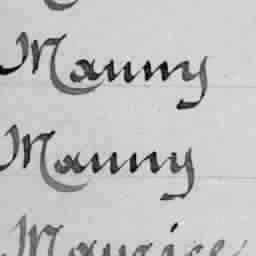 Manny
Manny
Maurice